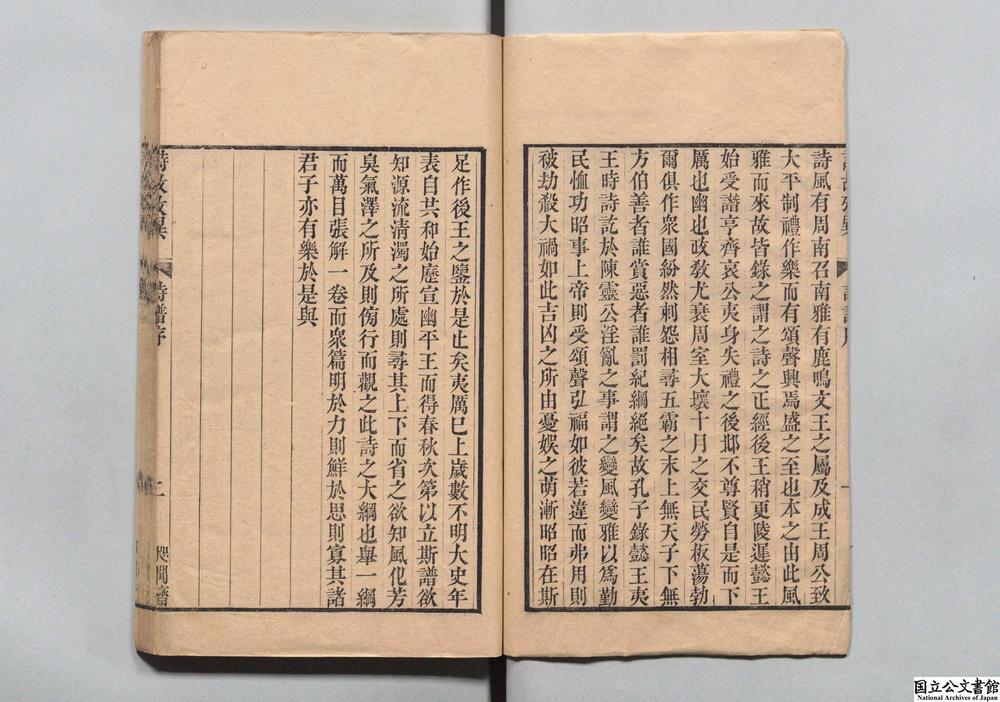 詩風有周南召南雅有鹿鳴文王之屬及成王周公致
大平制禮作樂而有頌聲興焉盛之至也本之由此風
雅而來故皆錄之謂之詩之正經後王稍更陵遲懿王
始受譖亨齊哀公夷身失禮之後邶不尊賢自是而下
厲也幽也政敎尤衰周室大壞十月之交民勞板蕩勃
爾俱作衆國紛然刺怨相尋五霸之末上無天子下無
方伯善者誰賞惡者誰罰紀綱絕矣故孔子錄懿王夷
王時詩訖於陳靈公淫亂之事謂之變風變雅以爲勤
民恤功昭事上帝則受頌聲弘福如彼若違而弗用則
被劫殺大禍如此吉凶之所由憂娛之萌漸昭昭在斯
足作後王之鑒於是止矣夷厲已上歲數不明大史年
表自共和始歷宣幽平王而得春秋次第以立斯譜欲
知源流淸濁之所處則尋其上下而省之欲知風化芳
臭氣澤之所及則傍行而觀之此詩之大綱也舉一綱
而萬目張解一卷而衆篇明於力則鮮於思則寡其諸
君子亦有樂於是與
詩譜序
二
国立公文書館
National Archives of Japan